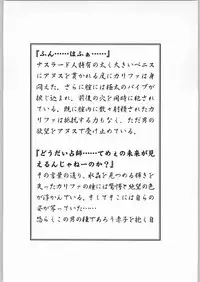 『ふん……はふぁ……』
ナスラード人特有の太く大きいペニス
にアヌスを貫かれる度にカリファは身
悶えた。さらに膣には極太のバイブが
捩じ込まれ、前後の穴を同時に犯され
ている。既に膣内に数々射精されたカ
リファは抵抗する力もなく、ただ男の
欲望をアヌスで受け止めている。
『どうだい占師……てめぇの未来が見
えるんじゃねーのか？』
その言葉の通り、水晶を見つめる輝き
を失ったカリファの瞳には驚愕と絶望の色
が浮かんでいる。そしてそこには自ら
の姿が写っていた……
恐らくこの男の種であろう赤子を抱く自